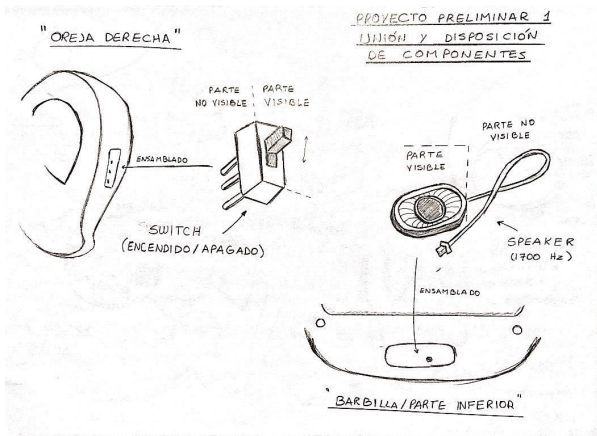 "OREJA DERECHA"
PROYECTO PRELIMINAR 1
UNIÓN Y DISPOSICIÓN
DE COMPONENTES
PARTE
NO VISIBLE
PARTE
VISIBLE
ENSAMBLADO
SWITCH
(ENCENDIDO/APAGADO)
PARTE NO
VISIBLE
PARTE
VISIBLE
SPEAKER
(1700 Hz)
ENSAMBLADO
"BARBILLA/PARTE INFERIOR"